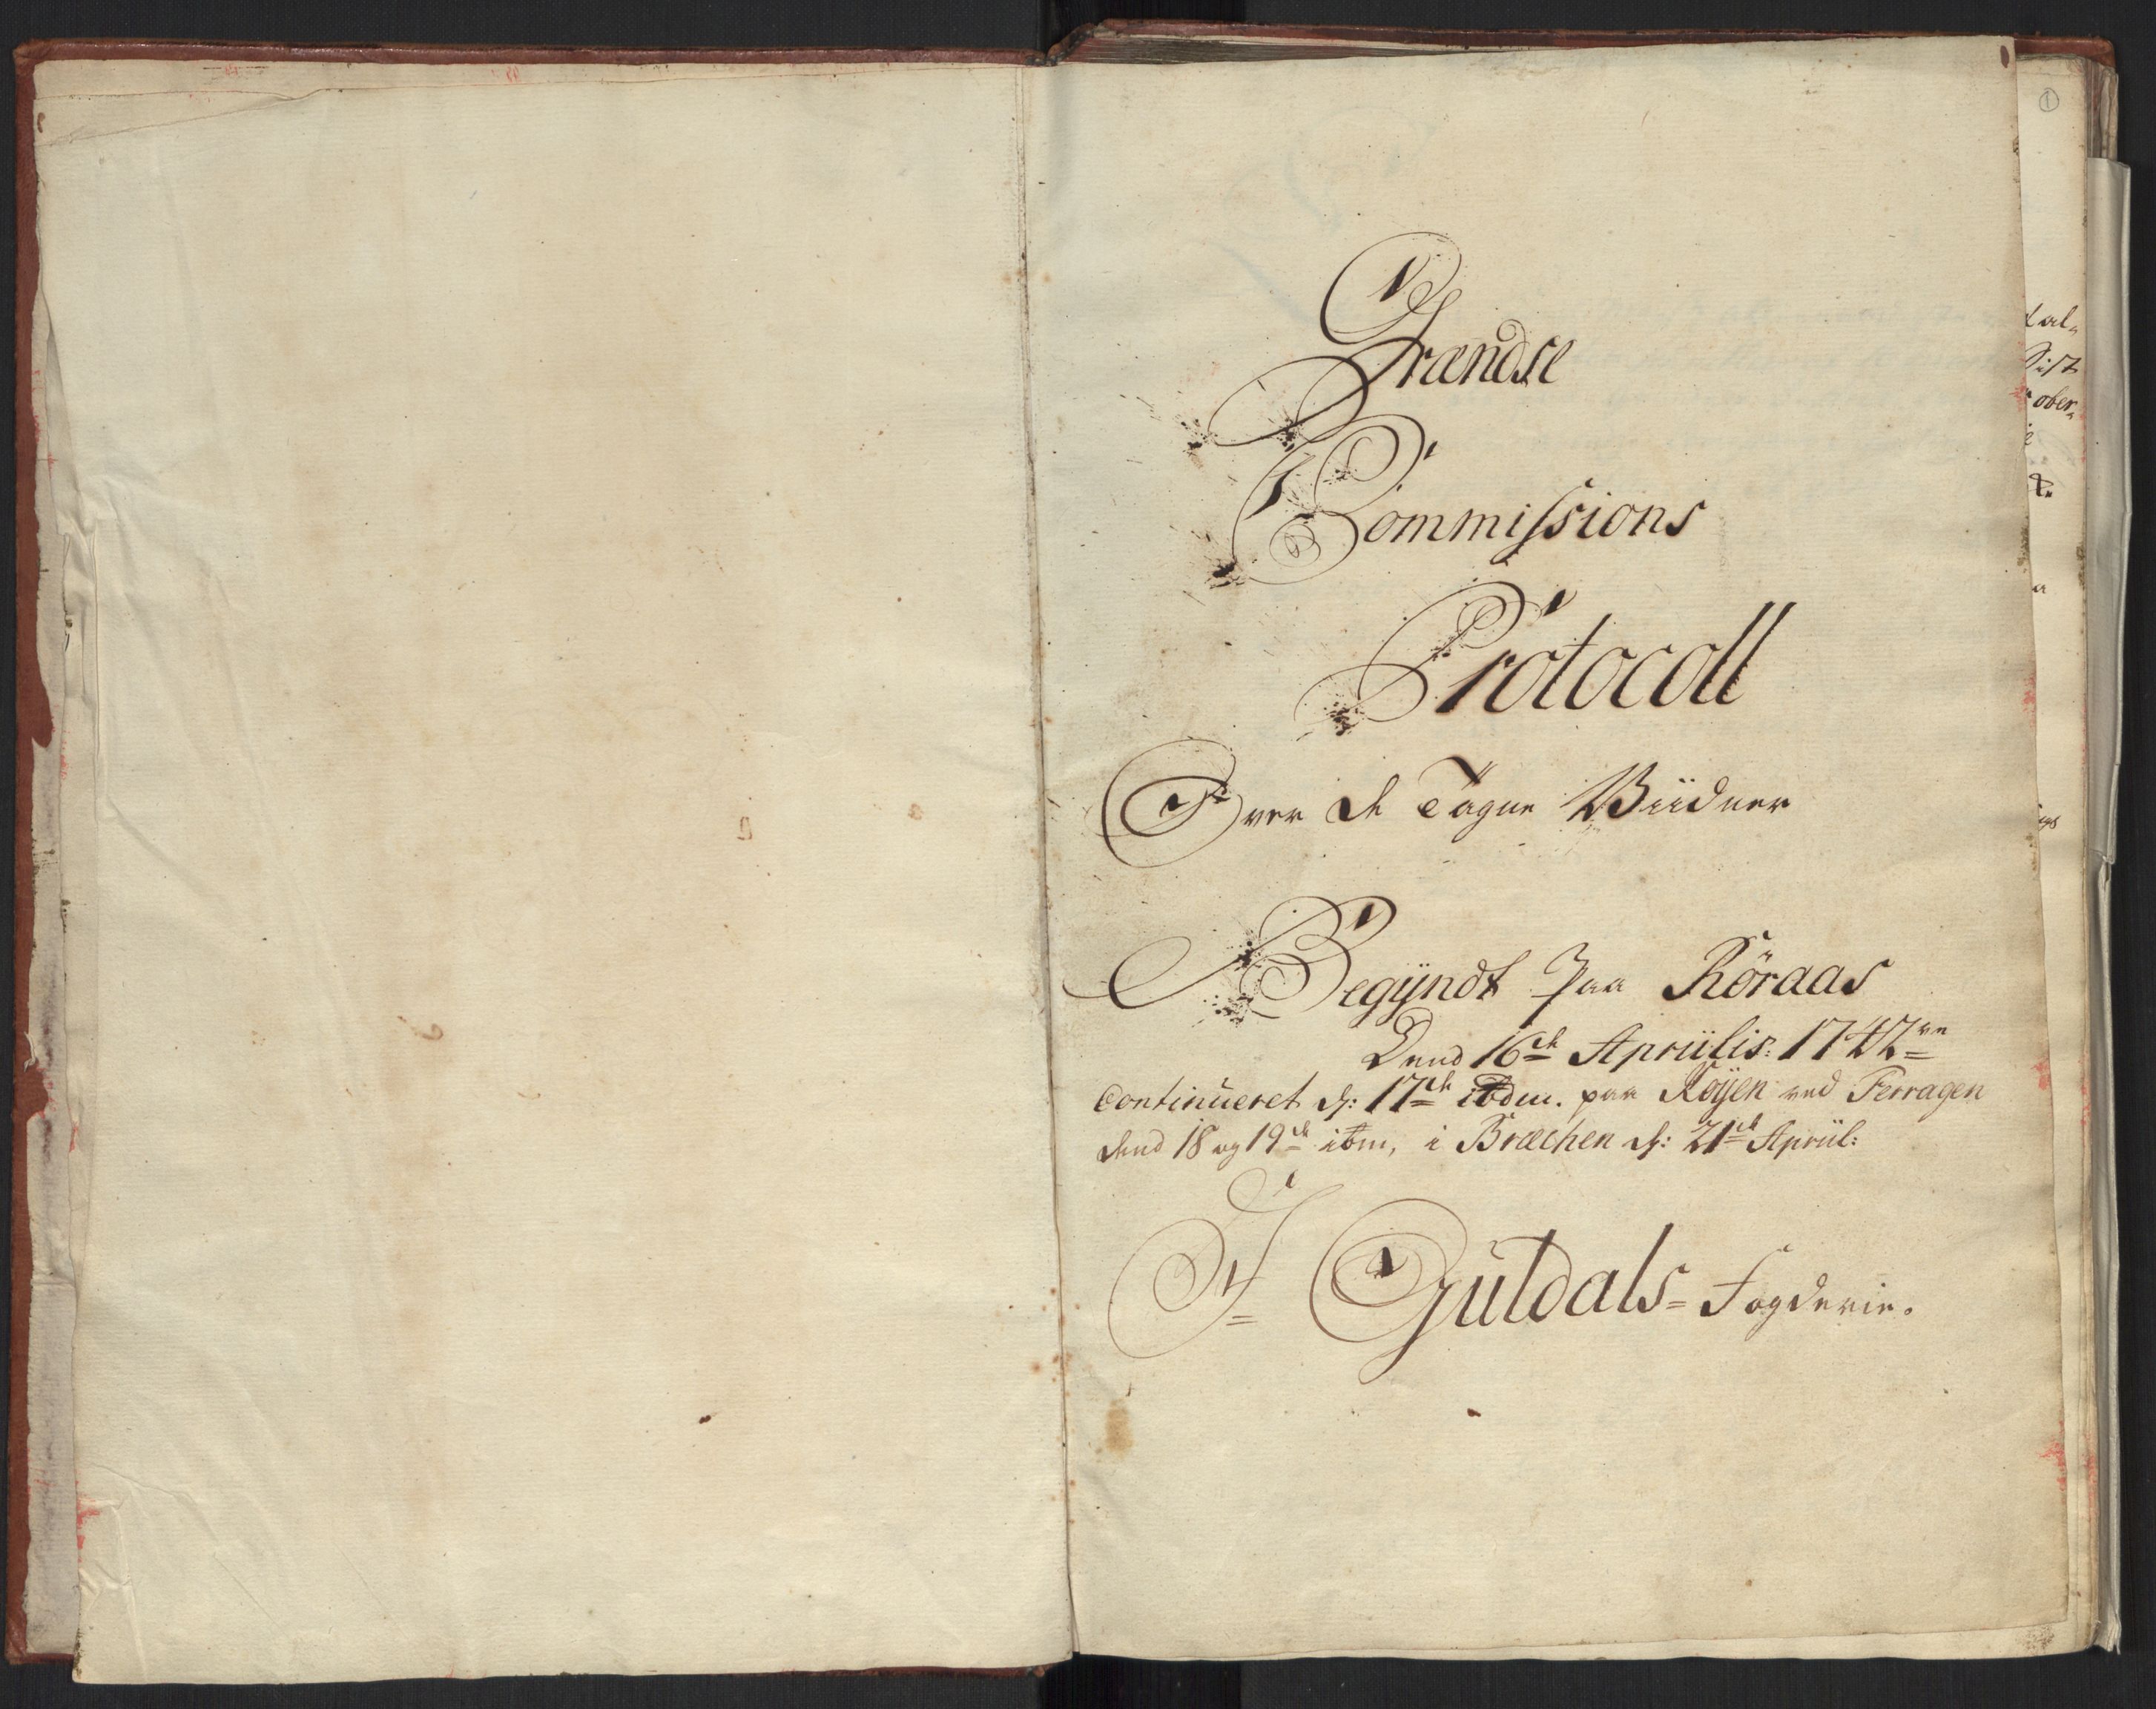 Grændse
Commissions
Protocoll
Over de Tagne Viidner
Begÿndt Paa Röraas
Dend 16de Apriilis: 1742de
Continueret d: 17de ibdm. paa Röÿen ved Ferragen
dend 18 og 19de ibm, i Bræchen d: 21de Apriil:
I Guldals= Fogderie.
1